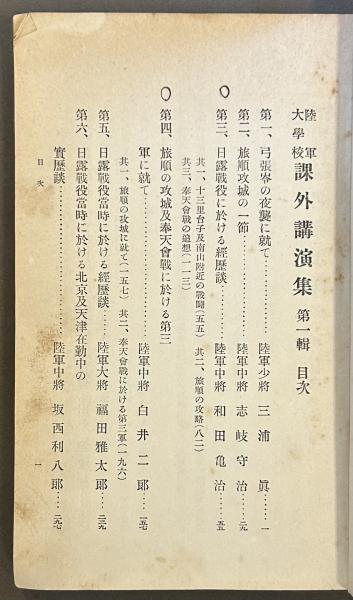 陸軍大學校 課外講演集 第一輯 目次
第一、弓張寺の夜襲に就て………陸軍少將 三浦 眞……一
第二、旅順攻城の一節………陸軍中將 志岐守治……元
第三、日露戰役に於ける經歷談………陸軍中將 和田亀治……五五
其一、十三里台子及南山附近の戰鬪(五五) 其二、旅順の攻略(八二)
其三、奉天會戰の追想(一一三)
第四、旅順の攻城及奉天會戰に於ける第三
軍に就て………陸軍中將 白井二郞……一五七
其一、旅順の攻城に就て(一五七) 其二、奉天會戰に於ける第三軍(一九六)
第五、日露戰役當時に於ける經歷談………陸軍大將 福田雅太郞……二元
第六、日露戰役當時に於ける北京及天津在勤中の
實歷談………陸軍中將 坂西利八郞……二九七
目次
一